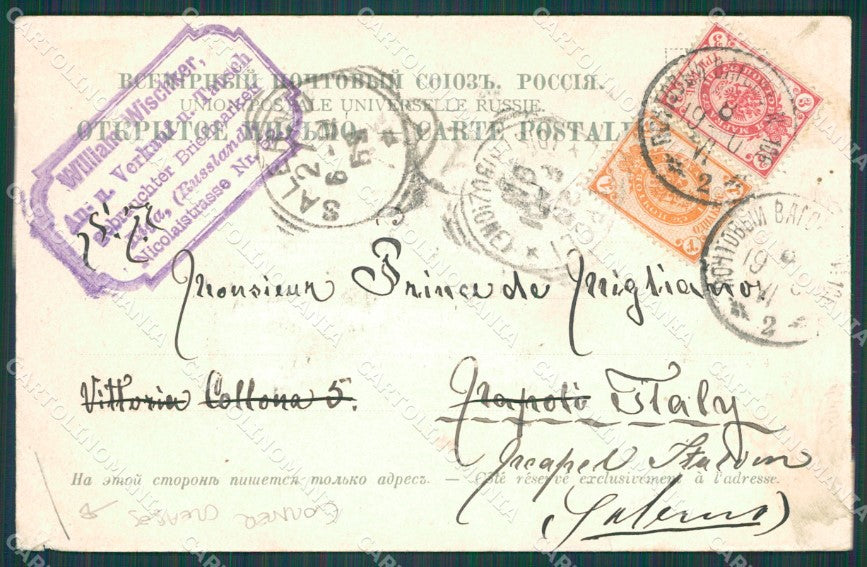 ВСЕМІРНЫЙ ПОЧТОВЫЙ СОЮЗЪ. РОССІЯ.
UNION POSTALE UNIVERSELLE RUSSIE.
ОТКРЫТОЕ ПИСЬМО. — CARTE POSTALE
William Wischter,
An- u. Verkauf u. Tausch
gebrauchter Briefmarken
(Russland)
Nicolaistrasse Nr.
SALERNO
ПОЧТОВЫЙ ВАГОНЪ
2
ПОЧТОВЫЙ ВАГО
2
Monsieur Prince de Migliano
Vittoria Collona 5.
Napoli Italy
(Salerno)
На этой сторонѣ пишется только адресъ. — Côté réservé exclusivement à l'adresse.
CORNER CREASES
CARTOLINOMANIA